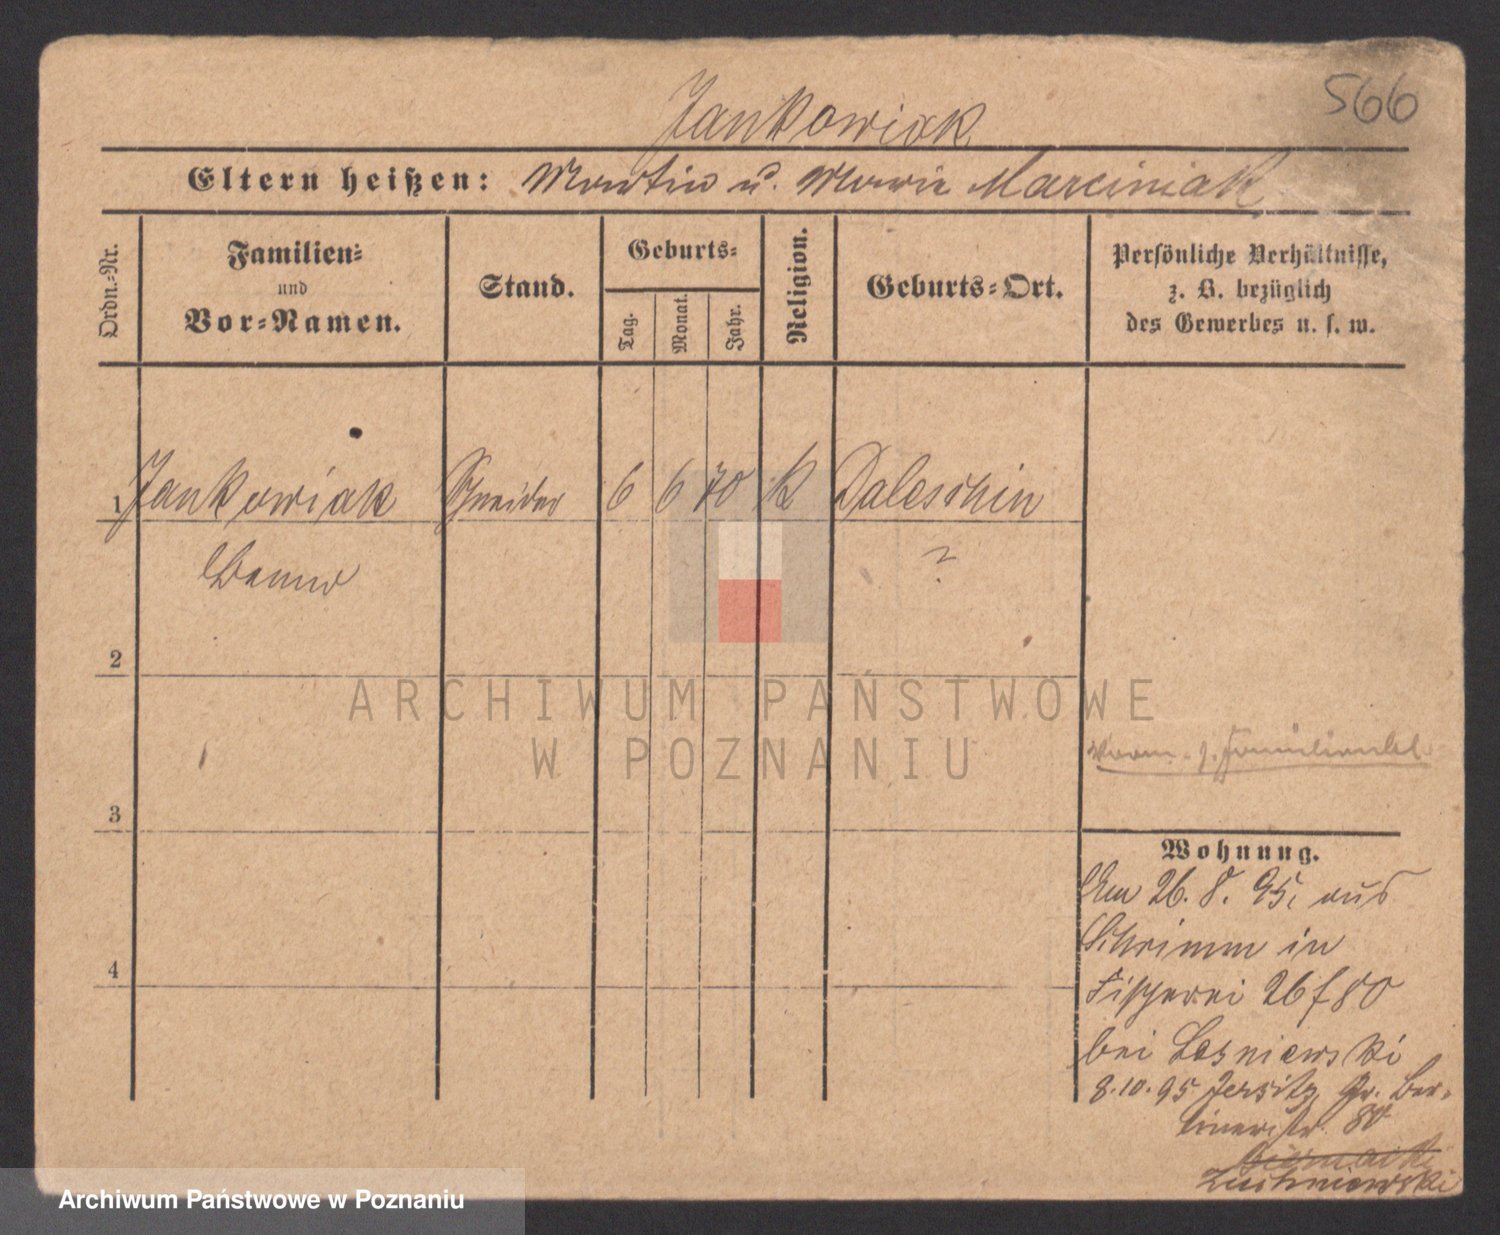 566
Jankowiak
Eltern heißen: Martin u. Marie Marciniak
Ordn.-Nr.
Familien- und Vor-Namen.
Stand.
Geburts-
Tag.
Monat.
Jahr.
Religion.
Geburts-Ort.
Persönliche Verhältnisse,
z. B. bezüglich
des Gewerbes u. s. w.
1 Jankowiak Schneider 6 6 70 K Daleschin
?
2
3
4
Wohnung.
Am 26. 8. 95, aus
Schrimm in
Fischerei 26 f 80
bei Lesniewski
8.10.95 Jersitz, Gr. Ber-
linerstr. 80
ARCHIWUM PAŃSTWOWE
W POZNANIU
Archiwum Państwowe w Poznaniu